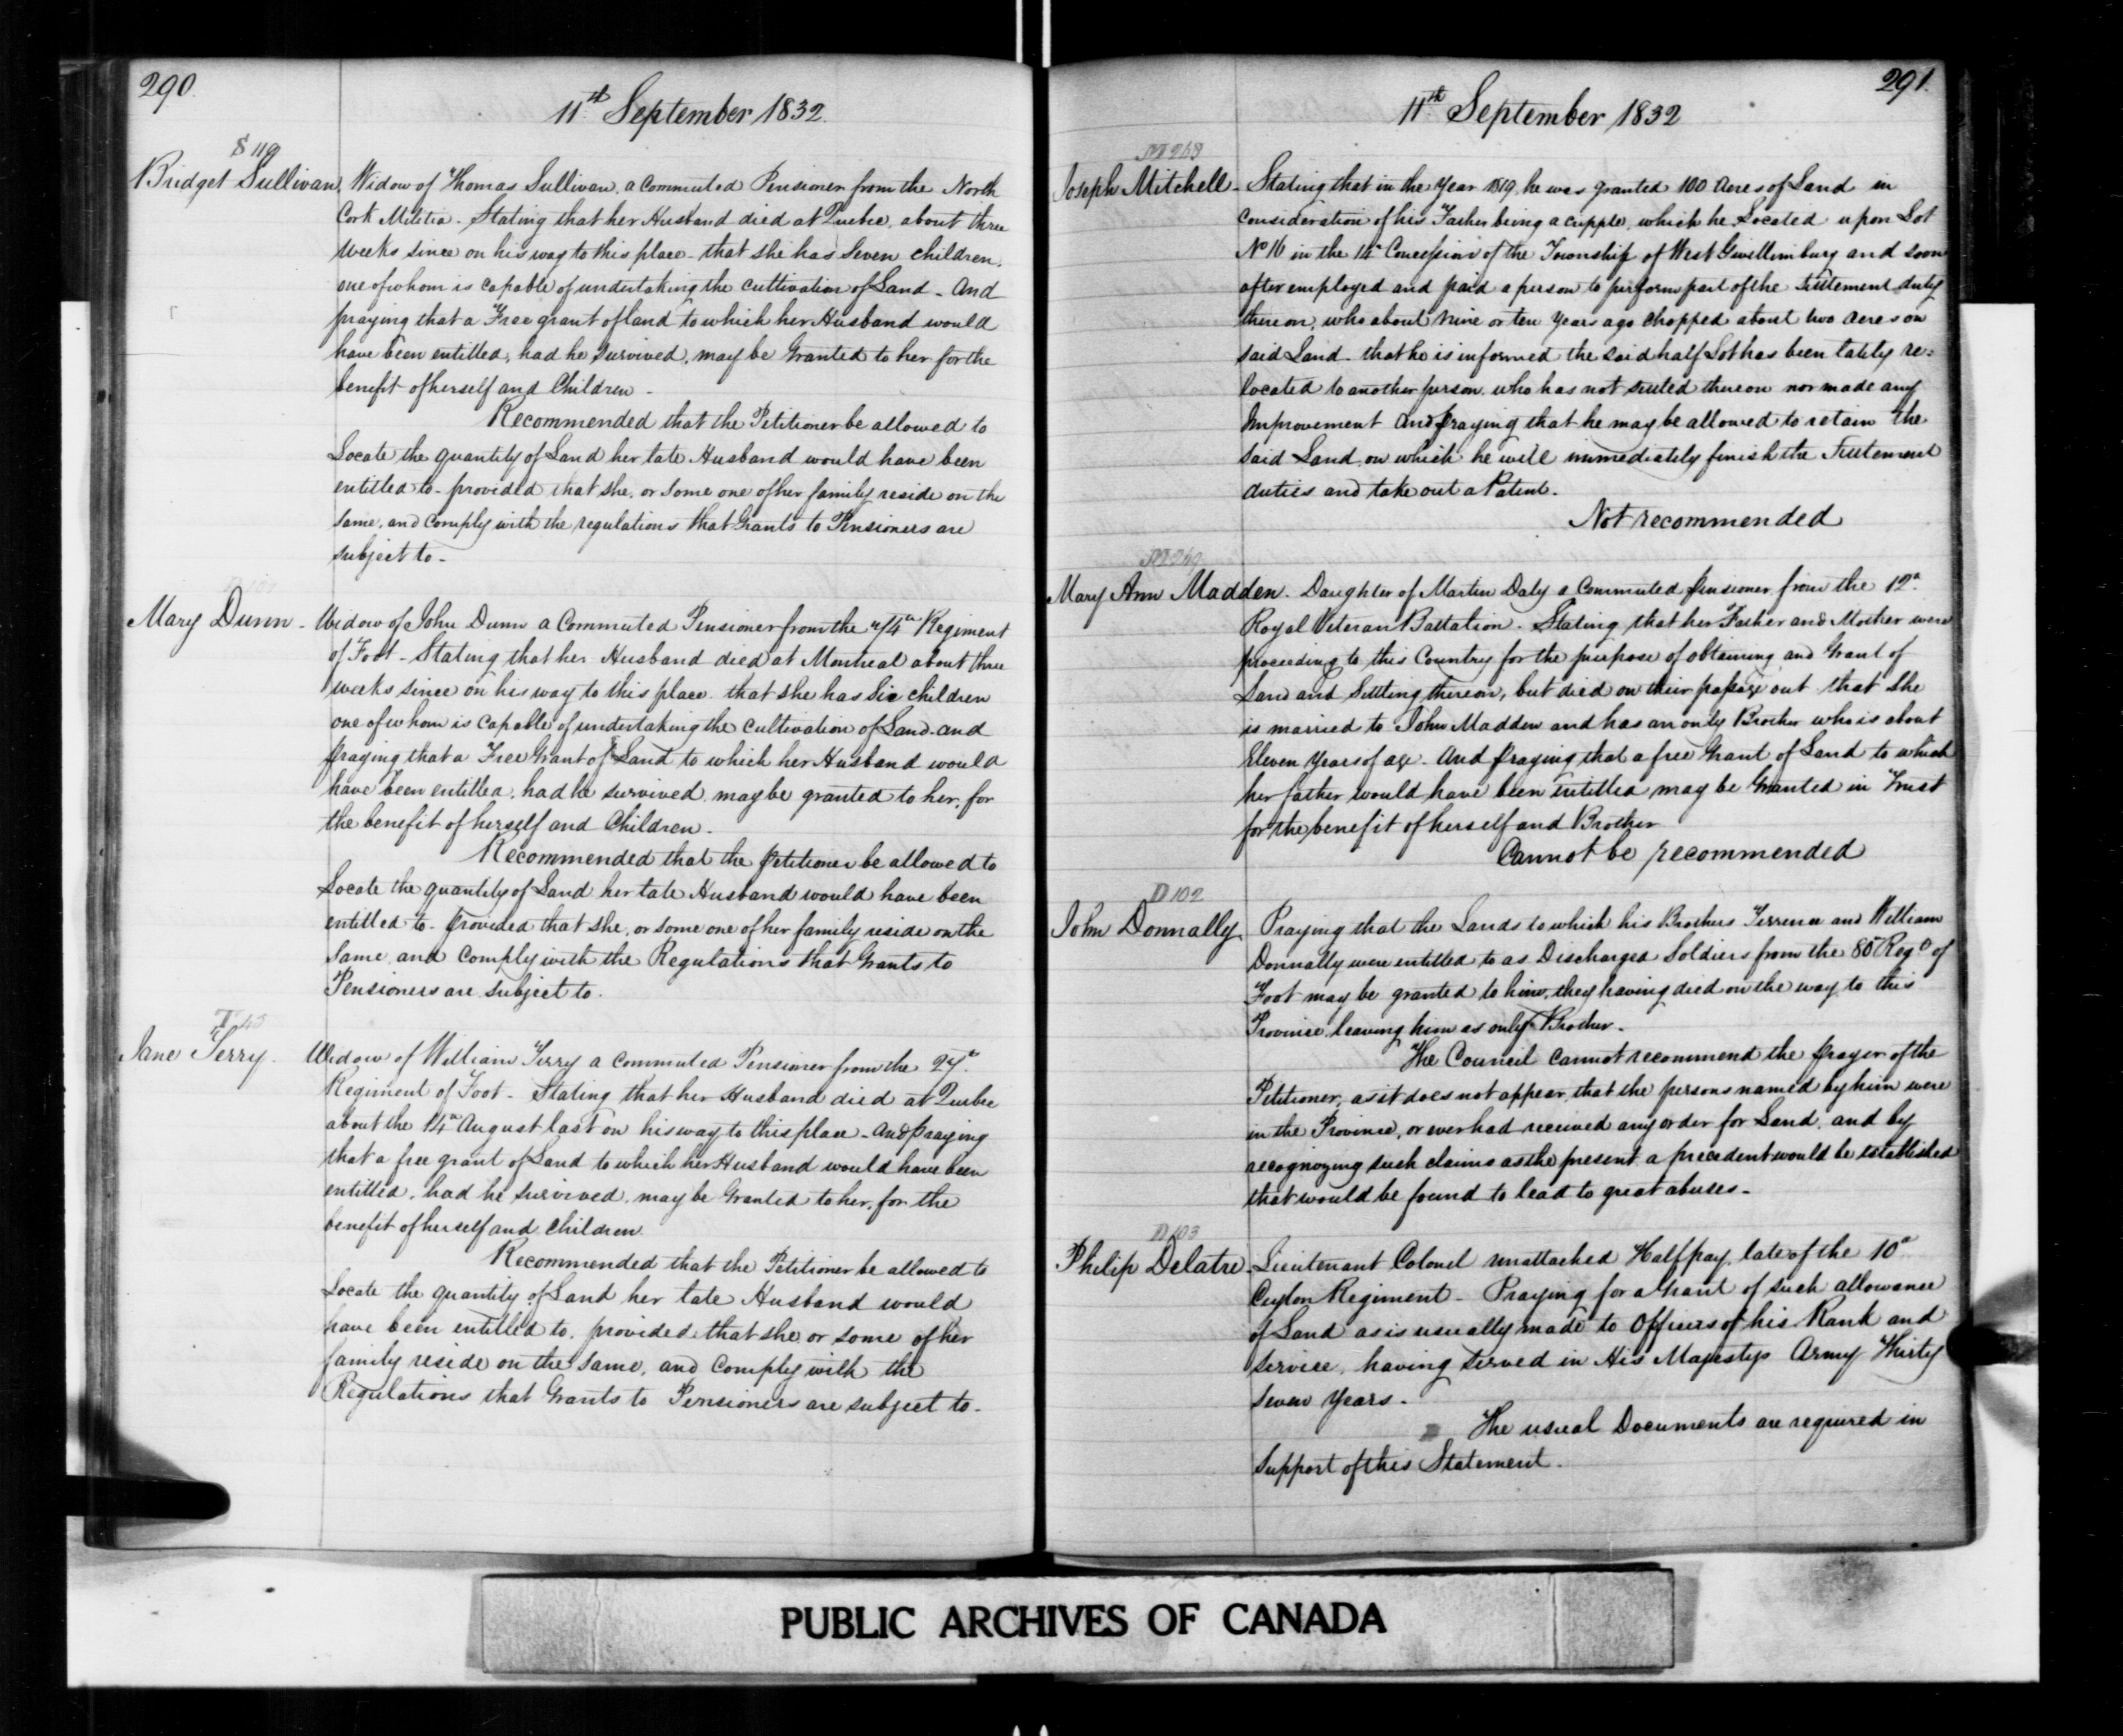 290.
11th September 1832.
S 119
Bridget Sullivan, Widow of Thomas Sullivan, a Commuted Pensioner from the North
Cork Militia - Stating that her Husband died at Quebec, about three
Weeks since on his way to this place - that she has Seven Children,
one of whom is capable of undertaking the cultivation of Land - And
praying that a Free grant of land to which her Husband would
have been entitled, had he survived, may be Granted to her for the
benefit of herself and Children -
Recommended that the Petitioner be allowed to
Locate the quantity of Land her late Husband would have been
entitled to - provided that she, or some one of her family reside on the
same, and Comply with the regulations that Grants to Pensioners are
subject to -
Mary Dunn - Widow of John Dunn a Commuted Pensioner from the 74th Regiment
of Foot - Stating that her Husband died at Montreal about three
weeks since on his way to this place. that she has Six children
one of whom is Capable of undertaking the Cultivation of Land - and
praying that a Free Grant of Land to which her Husband would
have been entitled, had he survived may be granted to her, for
the benefit of herself and Children -
Recommended that the petitioner be allowed to
Locate the quantity of Land her late Husband would have been
entitled to - provided that she, or some one of her family reside on the
Same, and Comply with the Regulations that Grants to
Pensioners are subject to.
T 45
Jane Terry. Widow of William Terry a Commuted Pensioner from the 27th
Regiment of Foot - Stating that her Husband died at Quebec
about the 14th August last on his way to this place - And praying
that a free grant of Land to which her Husband would have been
entitled, had he survived, may be Granted to her, for the
benefit of herself and Children
Recommended that the Petitioner be allowed to
Locate the quantity of Land her late Husband would
have been entitled to, provided that she or some of her
family reside on the same, and Comply with the
Regulations that Grants to Pensioners are subject to -
291.
11th September 1832
M 268
Joseph Mitchell - Stating that in the Year 1819, he was granted 100 Acres of Land in
consideration of his Father being a cripple, which he Located upon Lot
No 16 in the 14th Concession of the Township of West Gwillimburg and soon
after employed and paid a person to perform part of the Settlement duty
thereon, who about nine or ten Years ago Chopped about two Acres on
said Land - that he is informed the said half Lot has been lately re=
located to another person who has not settled thereon nor made any
Improvement And praying that he may be allowed to retain the
said Land, on which he will immediately finish the Settlement
duties and take out a Patent.
Not recommended
M 269
Mary Ann Madden - Daughter of Martin Daly a Commuted pensioner from the 12th
Royal Veteran Battation - Stating that her Father and Mother were
proceeding to this Country for the purpose of obtaining and Grant of
Land and Settling thereon, but died on their passage out that she
is married to John Madden and has an only Brother who is about
Eleven Years of age - And praying that a free Grant of Land to which
her father would have been Entitled may be Granted in Trust
for the benefit of herself and Brother
Cannot be recommended
D 102
John Donnally. Praying that the Lands to which his Brothers Terrence and William
Donnally were entitled to as Discharged Soldiers from the 80th Regt of
Foot may be granted to him, they having died on the way to this
Province leaving him as only Brother -
The Council Cannot recommend the prayer of the
Petitioner, as it does not appear that the persons named by him were
in the Province, or ever had received any order for Land, and by
recognizing such claims as the present a precedent would be established
that would be found to lead to great abuses -
D 103
Philip Delatre - Lieutenant Colonel unattached Half pay, late of the 10th
Ceylon Regiment - Praying for a Grant of such allowance
of Land as is usually made to Officers of his Rank and
Service, having served in His Majestys Army Thirty
Seven Years -
The usual Documents are required in
Support of this Statement.
PUBLIC ARCHIVES OF CANADA